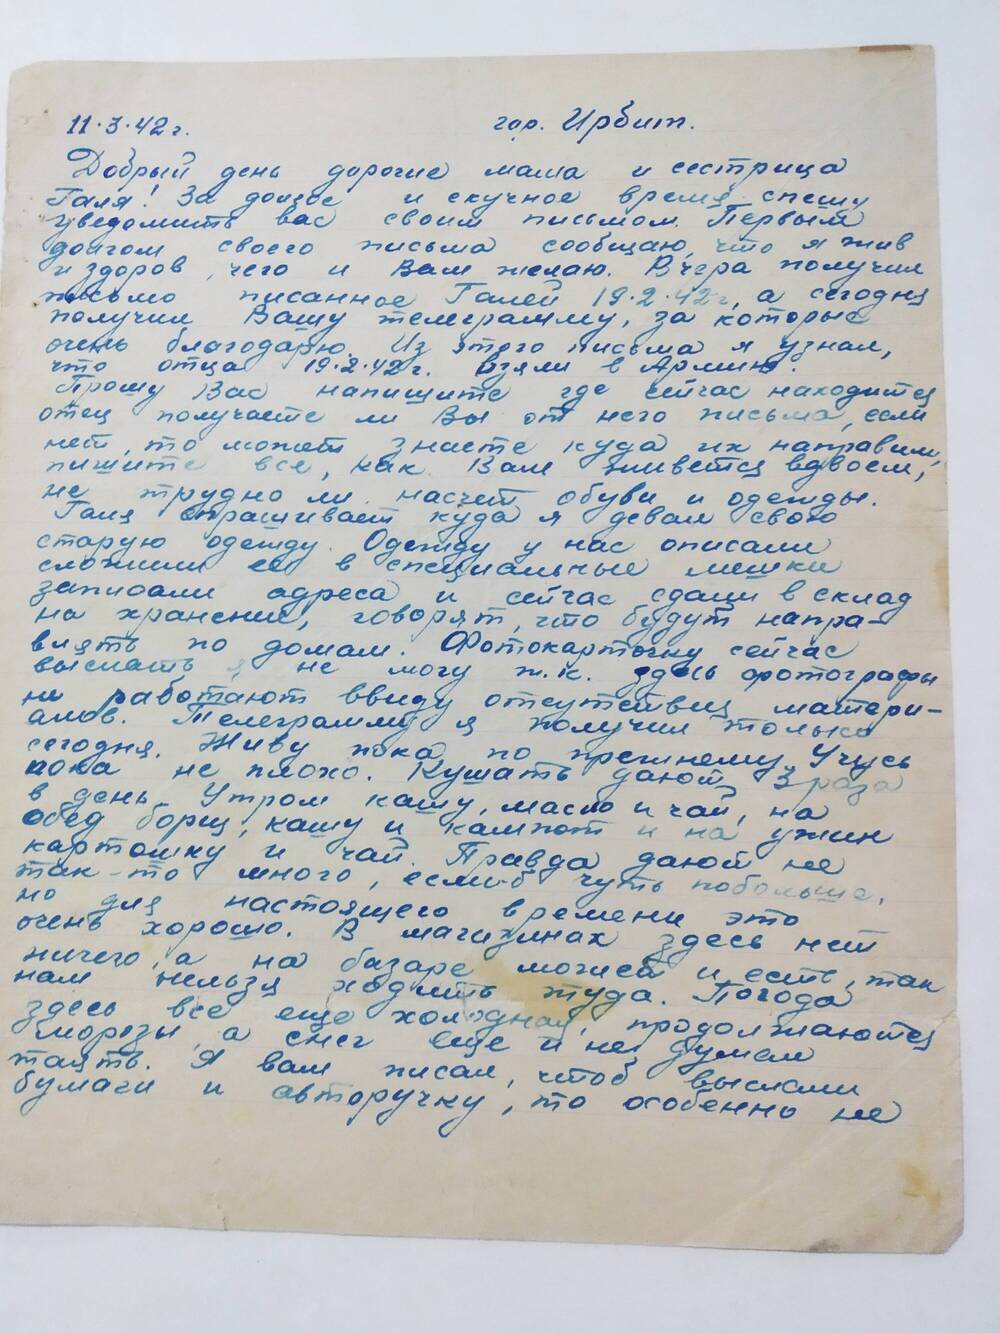 11.3.42 г. гор. Ирбит.
Добрый день дорогие мама и сестрица
Галя! За долгое и скучное время спешу
уведомить вас своим письмом. Первым
долгом своего письма сообщаю, что я жив
и здоров, чего и Вам желаю. Вчера получил
письмо писанное Галей 19.2.42 г, а сегодня
получил Вашу телеграмму, за которые
очень благодарю. Из этого письма я узнал,
что отца 19.2.42 г. взяли в Армию.
Прошу Вас напишите где сейчас находится
отец получаете ли Вы от него письма, если
нет, то может знаете куда их направили,
пишите все, как Вам живется вдвоем,
не трудно ли насчет обуви и одежды.
Галя спрашивает куда я девал свою
старую одежду. Одежду у нас описали
сложили ее в специальные мешки
записали адреса и сейчас сдали в склад
на хранение, говорят, что будут напра-
влять по домам. Фотокарточку сейчас
выслать я не могу т.к. здесь фотографы
не работают ввиду отсутствия матери-
алов. Телеграмму я получил только
сегодня. Живу пока по прежнему. Учусь
пока не плохо. Кушать дают 3 раза
в день. Утром кашу, масло и чай, на
обед борщ, кашу и кампот и на ужин
картошку и чай. Правда дают не
так-то много, если-б чуть побольше,
но для настоящего времени это
очень хорошо. В магизинах здесь нет
ничего, а на базаре может и есть, так
нам нельзя ходить туда. Погода
здесь все еще холодная, продолжаются
морозы, а снег еще и не думал
таять. Я вам писал, чтоб выслали
бумаги и авторучку, то особенно не